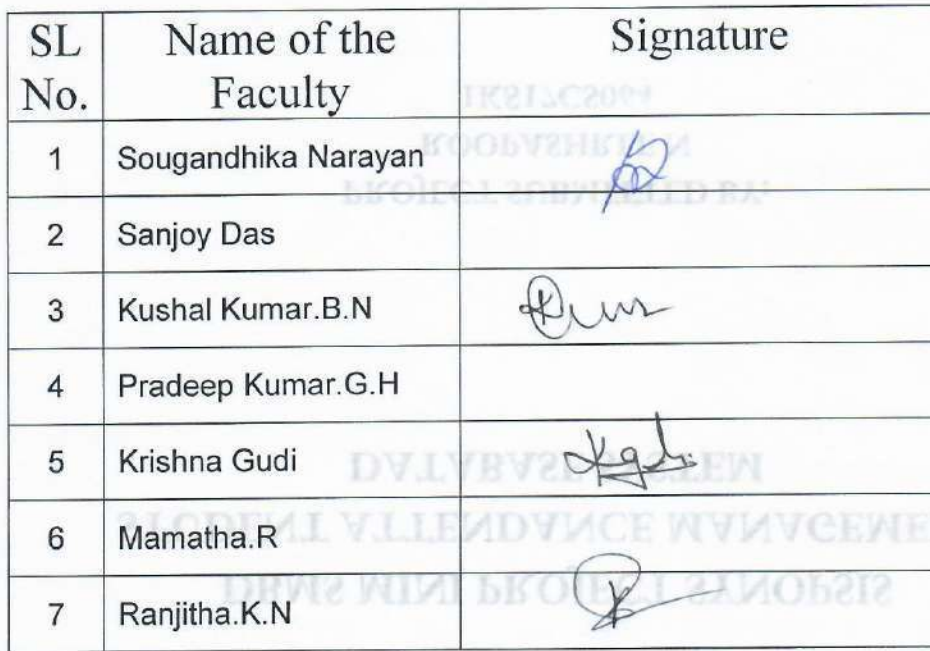 SL No.
Name of the Faculty
Signature
1 Sougandhika Narayan
2 Sanjoy Das
3 Kushal Kumar.B.N
4 Pradeep Kumar.G.H
5 Krishna Gudi
6 Mamatha.R
7 Ranjitha.K.N